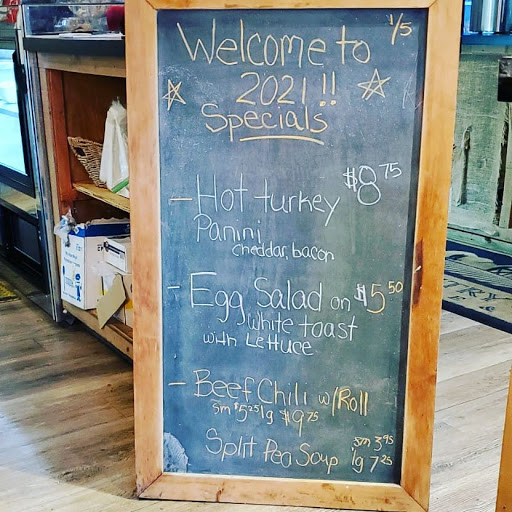 1/5
Welcome to
2021!!
Specials
- Hot turkey $8.75
Panini
cheddar, bacon
- Egg Salad on $5.50
white toast
with Lettuce
- Beef Chili w/Roll
sm $5.25 lg $9.75
Split Pea Soup sm 3.95
lg 7.25